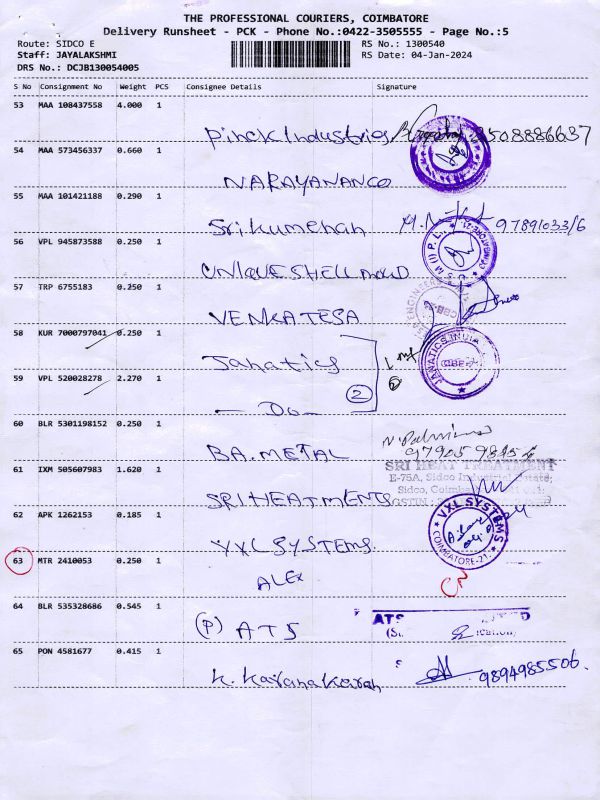 THE PROFESSIONAL COURIERS, COIMBATORE
Delivery Runsheet - PCK - Phone No.:0422-3505555 - Page No.:5
Route: SIDCO E
RS No.: 1300540
Staff: JAYALAKSHMI
RS Date: 04-Jan-2024
DRS No.: DCJB130054005
S No Consignment No Weight PCS Consignee Details Signature
53 MAA 108437558 4.000 1
Pinck Industries 9508886637
54 MAA 573456337 0.660 1
NARAYANANCO
55 MAA 101421188 0.290 1
Srikumehah 97891033/6
56 VPL 945873588 0.250 1
UNIQUE SHELL MOLD
57 TRP 6755183 0.250 1
VENKATESA
58 KUR 7000797041 0.250 1
Janatics
JANATICS INDIA
CBE
59 VPL 520028278 2.270 1
2
- Do -
60 BLR 5301198152 0.250 1
97905 9815
BA. METAL
SRI HEAT TREATMENT
61 IXM 505607983 1.620 1
E-75A, Sidco Industrial Estate,
Sidco,
GSTIN
SRIHEATMENTS
62 APK 1262153 0.185 1
VXL SYSTEMS
COIMBATORE-21.
VXL SYSTEMS
63 MTR 2410053 0.250 1
ALEX
CN
64 BLR 535328686 0.545 1
ATS
(P) ATS
65 PON 4581677 0.415 1
K. Karanakaran 9894985506.